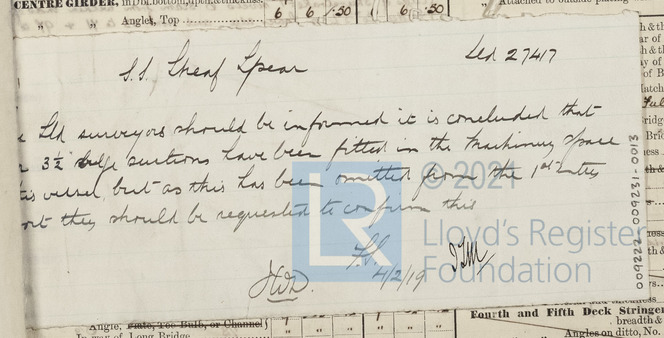 CENTRE GIRDER, in Dbl. bottom, depth & thickness.
" " Angles, Top
6 6 .50 11 6 .50
Attached to outside plating
S.S. Sheaf Spear
Sld 27417
Sld surveyors should be informed it is concluded that
3½ bilge suctions have been fitted in the Machinery space
this vessel, but as this has been omitted from the 1st Entry
they should be requested to confirm this
4/2/19
JWD.
© 2021
LR
Lloyd's Register
Foundation
009222-009231-0013
Angle, Plate, Tee Bulb, or Channel
In way of Long Bridge
Fourth and Fifth Deck Stringer
breadth &
Angles on ditto, No.